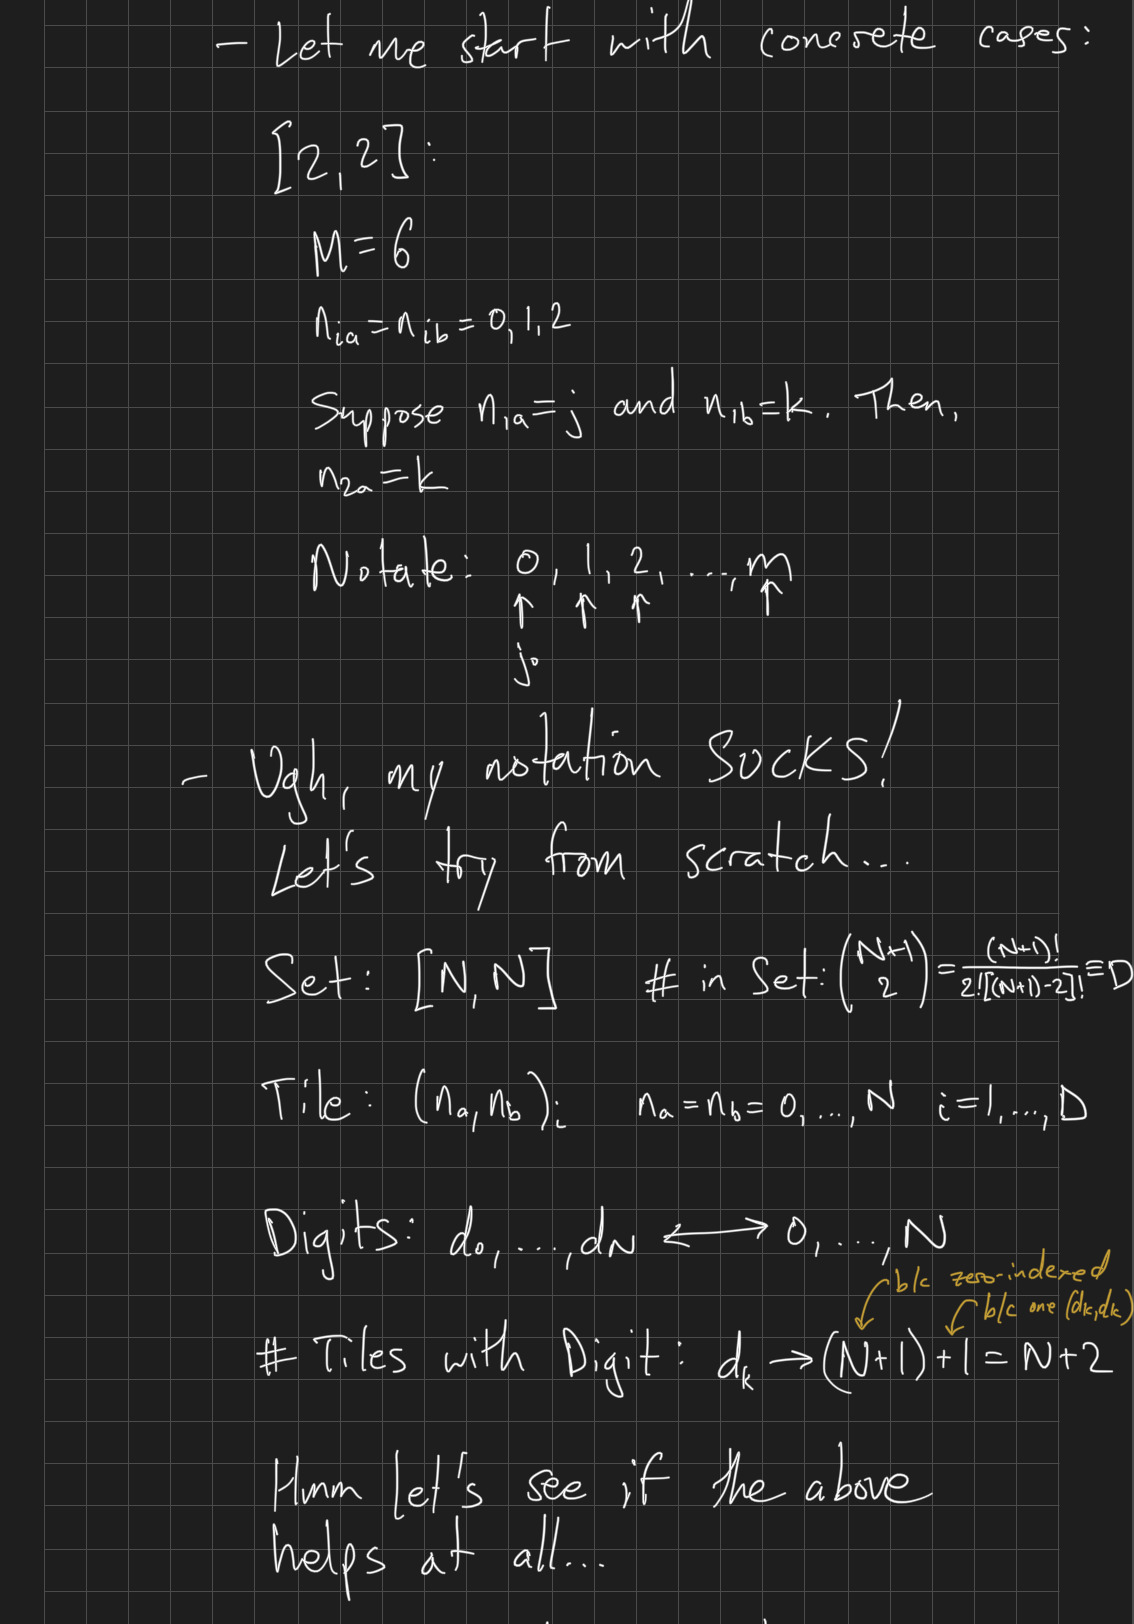 - Let me start with concrete cases:
[2, 2]:
M = 6
n_{ia} = n_{ib} = 0, 1, 2
Suppose n_{1a} = j and n_{1b} = k. Then,
n_{2a} = k
Notate: 0, 1, 2, ..., m
↑ ↑ ↑ ↑
j_0
- Ugh, my notation SUCKS!
Let's try from scratch...
Set: [N, N] # in Set: \binom{N+1}{2} = \frac{(N+1)!}{2![(N+1)-2]!} ≡ D
Tile: (n_a, n_b)_i n_a = n_b = 0, ..., N i = 1, ..., D
Digits: d_0, ..., d_N ⟷ 0, ..., N
b/c zero-indexed
b/c one (d_k, d_k)
# Tiles with Digit: d_k → (N+1) + 1 = N+2
Hmm let's see if the above
helps at all...